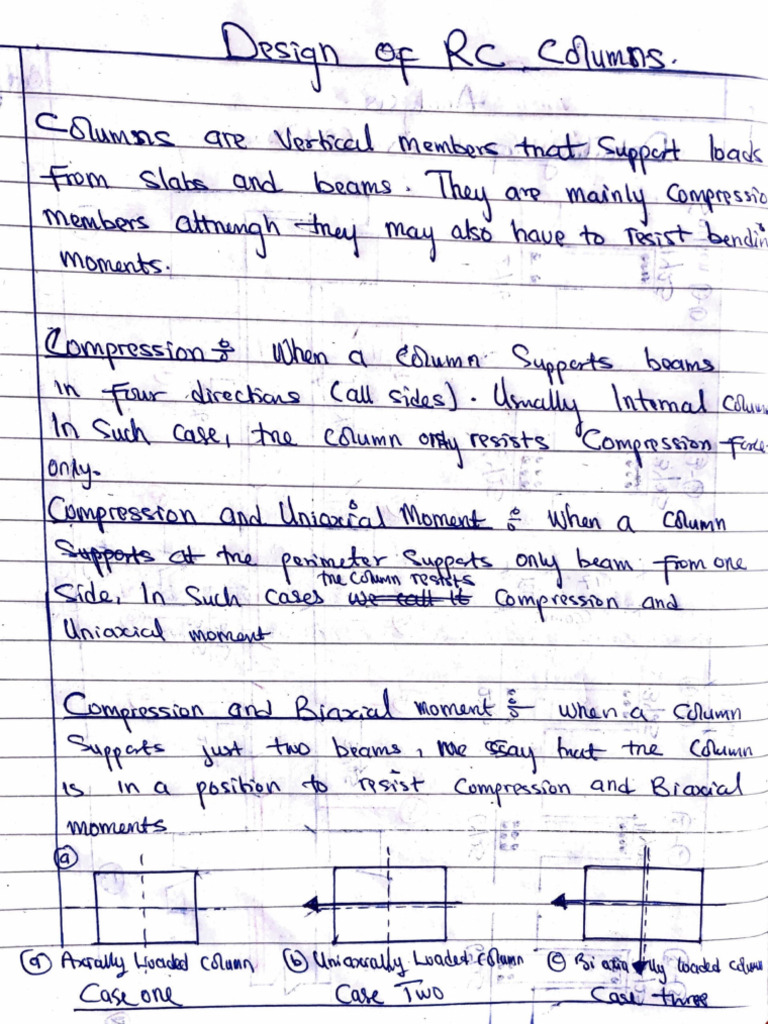 Design of RC Columns.
Columns are vertical members that support loads
from slabs and beams. They are mainly compressio
members although they may also have to resist bendin
moments.
Compression:- When a column supports beams
in four directions (all sides). Usually Internal colum
In such case, the column only resists Compression force
only.
Compression and Uniaxial Moment:- When a column
supports at the perimeter supports only beam from one
the column resists
side, In such cases we call it compression and
Uniaxial moment
Compression and Biaxial moment:- when a column
supports just two beams, we say that the column
is in a position to resist compression and Biaxial
moments
(a)
(a) Axially Loaded column (b) Uniaxially Loaded column (c) Biaxially loaded column
Case one Case Two Case three